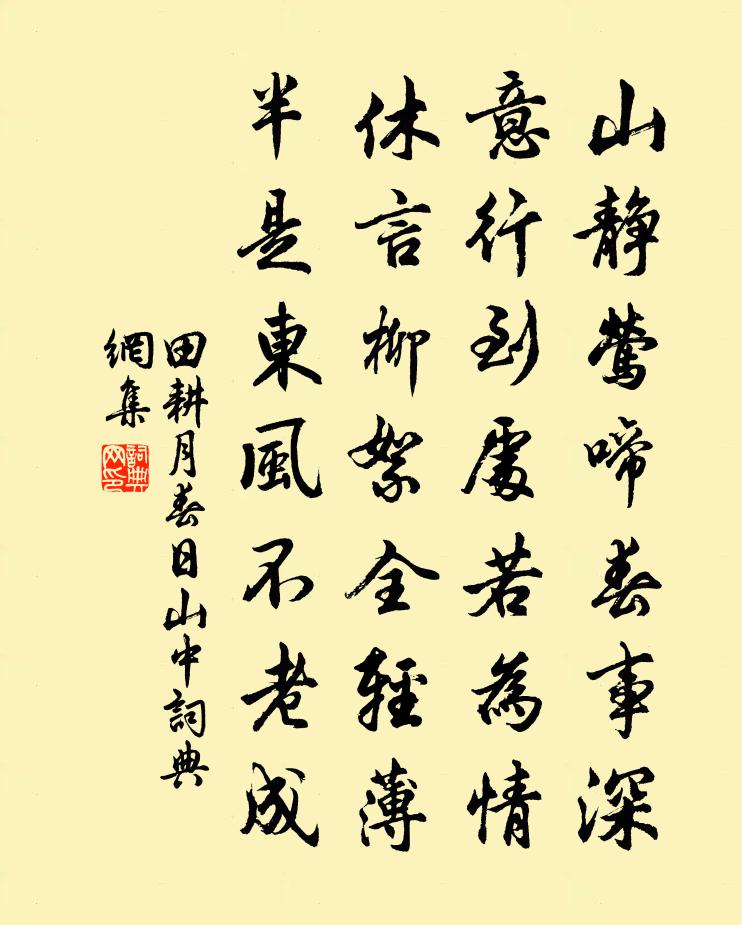 山靜鶯啼春事深
意行到處若為情
休言柳絮全輕薄
半是東風不老成
田耕月春日山中詞典
網集
詞典
网印